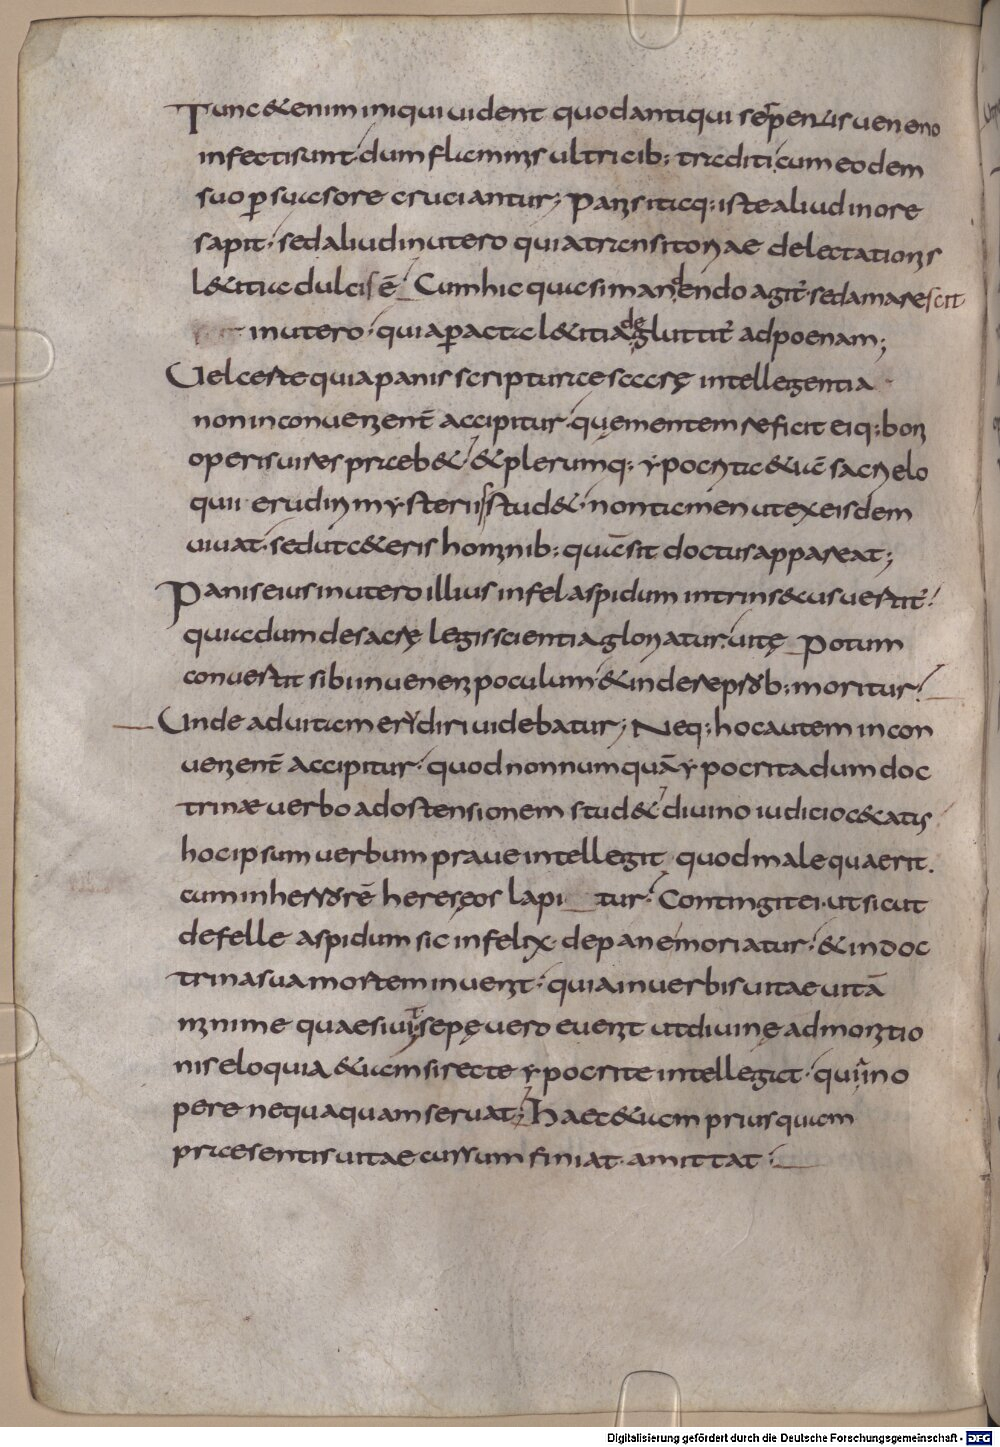 Tunc & enim iniqui uident quod antiqui serpentis ueneno
infecti sunt. dum flammis ultricib; traditi. cum eodem
suo ꝑsuasore cruciantur; Panis itaq; iste aliud in ore
sapit. sed aliud in utero quia transitoriae delectationis
l&itia dulcis ē. Cum hic quasi mandendo agit᷑. sed amarescit
in utero. quia ꝑacta l&itia deglutit᷑ ad poenam;
Uel certe quia panis scripturae sacrę intellegentia
non inconuenient̄ accipitur. quę mentem reficit eiq; boni
operis uires praeb&. & plerumq; ypocrita & iā sacri elo
quii erudiri mysteriis stud&. non tamen ut ex eisdem
uiuat. sed ut c&eris hominib; quā sit doctus appareat;
Panis eius in utero illius in fel aspidum intrinsecus uertit᷑.
qui dum de sacrę legis scientia gloriatur. uitę Potum
conuertit sibi in ueneni poculum. & inde reprob; moritur.
Unde ad uitam erydiri uidebatur; Neq; hoc autem incon
uenient̄ accipitur. quod nonnumquā ypocrita dum doc
trinæ uerbo ad ostensionem stud&. diuino iudicio c&catis
hoc ipsum uerbum praue intellegit quod male quaerit.
cum in herrorē hereseos lapi tur. Contingit ei. ut sicut
de felle aspidum sic infelix de pane moriatur. & in doc
trina sua mortem inuenit. quia in uerbis uitae uitā
minime quaesiuit. sepę uero euenit ut diuinę admonitio
nis eloquia & iam si recte ypocrite intellegat. quia in o
pere nequaquam seruat; Haec & iam priusquam
praesentis uitae cursum finiat. amittat.
Digitalisierung gefördert durch die Deutsche Forschungsgemeinschaft - DFG